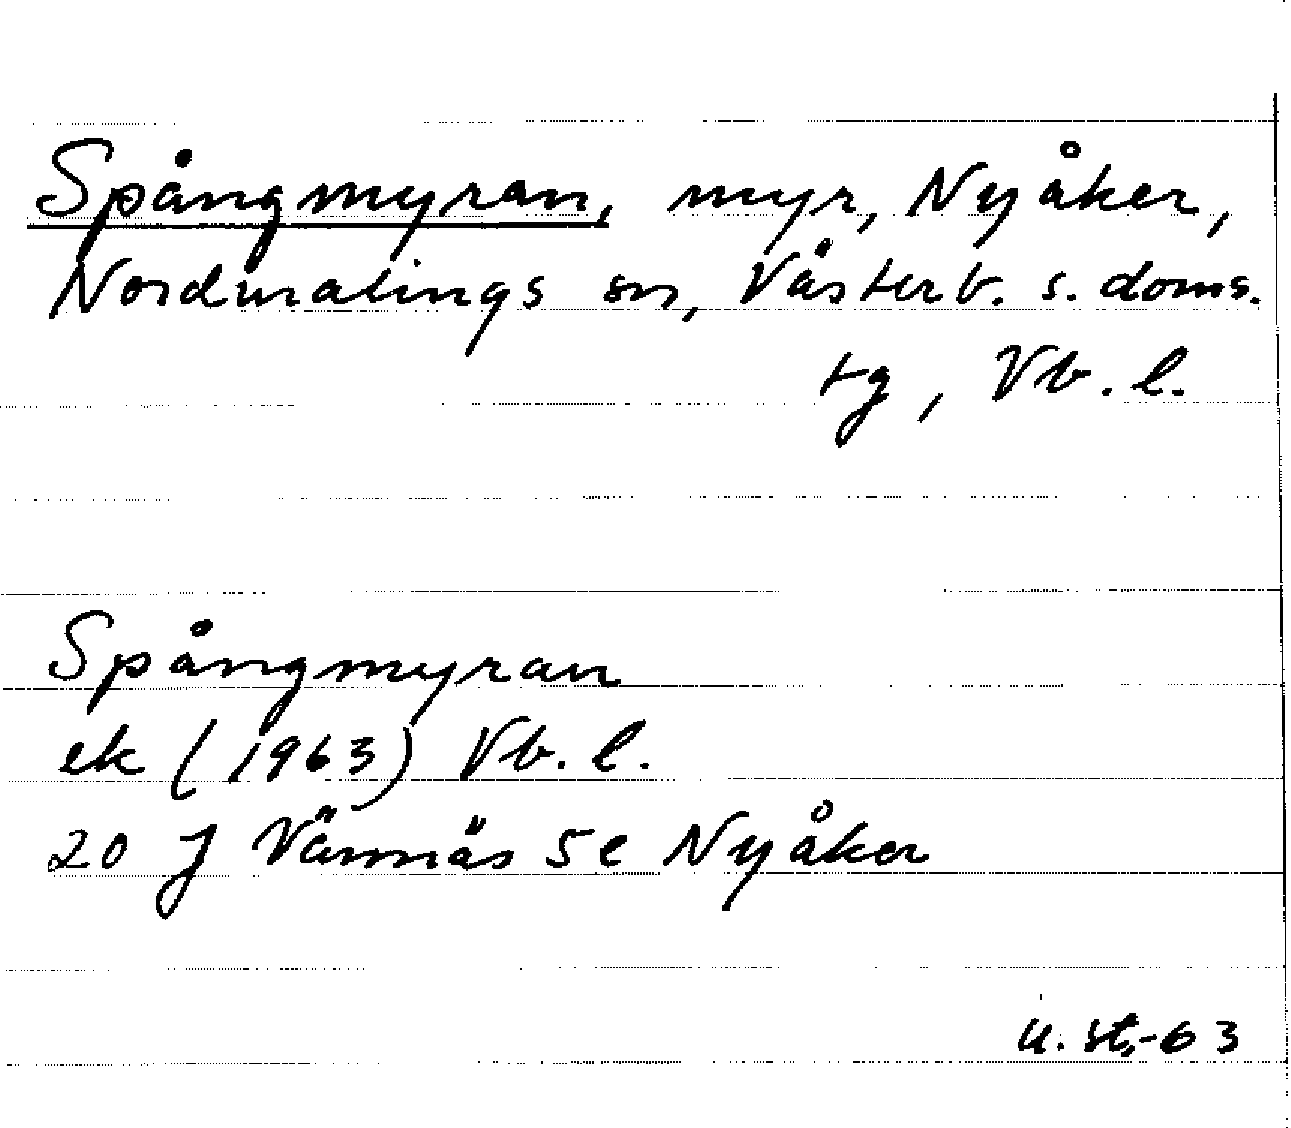 Spångmyran, myr, Nyåker,
Nordmalings sn, Västerb. s. doms.
tg, Vb. l.
Spångmyran
ek (1963) Vb. l.
20 J Vännäs 5 e Nyåker
U. St.-63